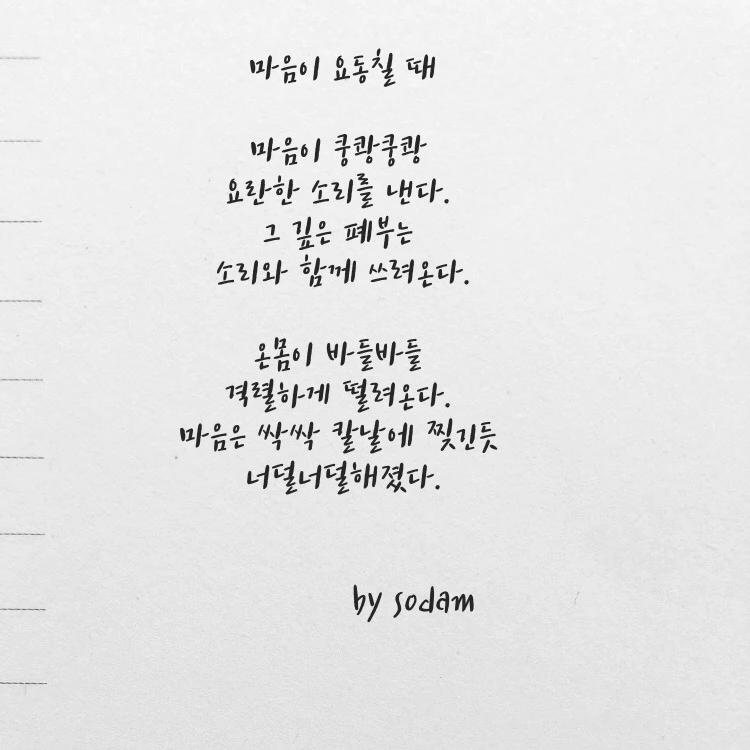 마음이 요동칠 때
마음이 쿵쾅쿵쾅
요란한 소리를 낸다.
그 깊은 폐부는
소리와 함께 쓰려온다.
온몸이 바들바들
격렬하게 떨려온다.
마음은 싹싹 칼날에 찢긴듯
너덜너덜해졌다.
by sodam